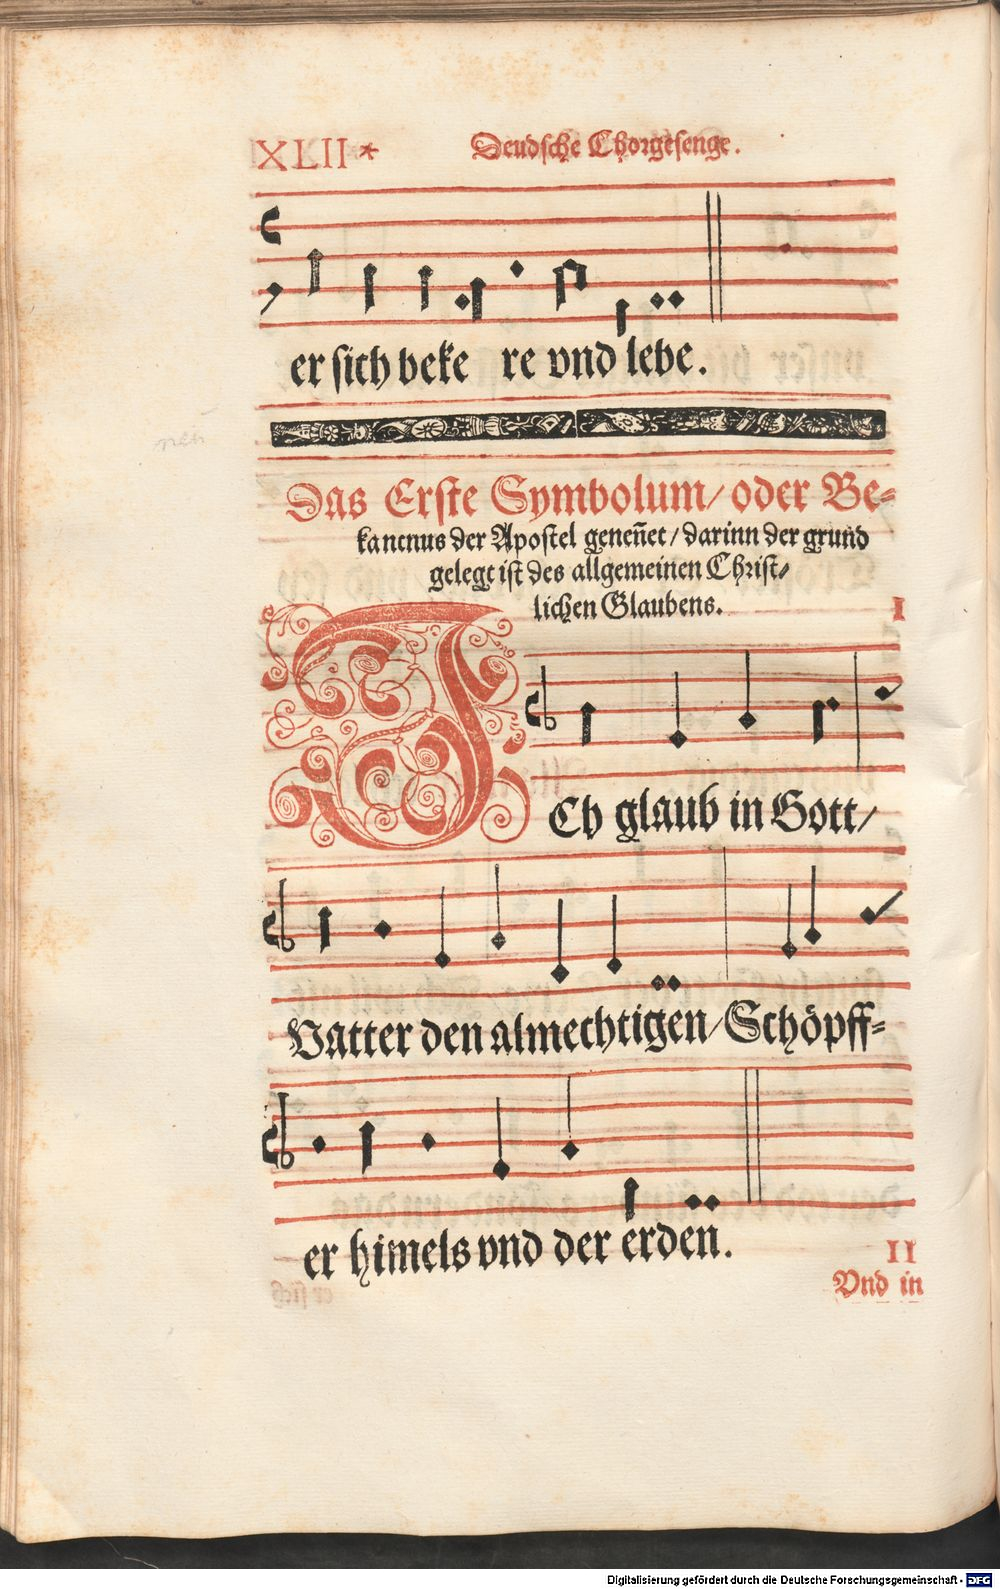 XLII *
Deudsche Chorgesenge.
er sich beke re vnd lebe.
Das Erste Symbolum/ oder Be-
kantnus der Apostel geneñet/ darinn der grund
gelegt ist des allgemeinen Christ-
lichen Glaubens.
I
ICh glaub in Gott/
Vatter den almechtigen/ Schöpff-
er himels vnd der erden.
II
Vnd in
Digitalisierung gefördert durch die Deutsche Forschungsgemeinschaft - DFG